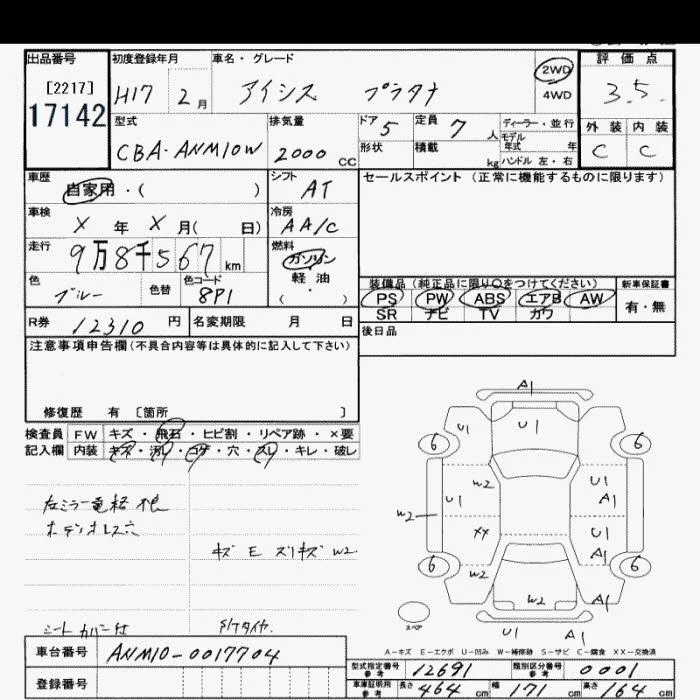 出品番号
[2217]
17142
初度登録年月
H17 2月
車名・グレード
アイシス プラタナ
2WD
4WD
評価点
3.5
外装 内装
C C
型式
CBA-ANM10W
排気量
2000 CC
ドア 5
形状
定員 7 人
積載 kg
ディーラー・並行
モデル年式 年
ハンドル 左・右
車歴
自家用・( )
シフト
AT
セールスポイント (正常に機能するものに限ります)
車検
X 年 X 月( 日)
冷房
AA/C
走行
9万8千567 km
燃料
ガソリン
軽油
( ・ )
色
ブルー
色替
色コード
8P1
装備品(純正品に限り○をつけてください)
新車保証書
PS PW ABS エアB AW
SR ナビ TV カワ
有・無
R券 12310 円
名変期限 月 日
後日品
注意事項申告欄(不具合内容等は具体的に記入して下さい)
修復歴 有 [箇所 ]
検査員 FW キズ・飛石・ヒビ割・リペア跡・×要
記入欄 内装 キズ・汚レ・コゲ・穴・スレ・キレ・破レ
左ミラー電格不良
キズ E スリキズ W2
シートカバー付
A1
U1
U1
6
6
W2
U1
A1
W2
U1
XX
U1
A1
6
6
W2
W2
スペア
U1
A1
A-キズ E-エクボ U-凹み W-補修跡 S-サビ C-腐食 XX-交換済
車台番号
ANM10-0017704
登録番号
型式指定番号 参考 12691
類別区分番号 参考 0001
車庫証明用 参考 長さ 464 cm 幅 171 cm 高さ 164 cm